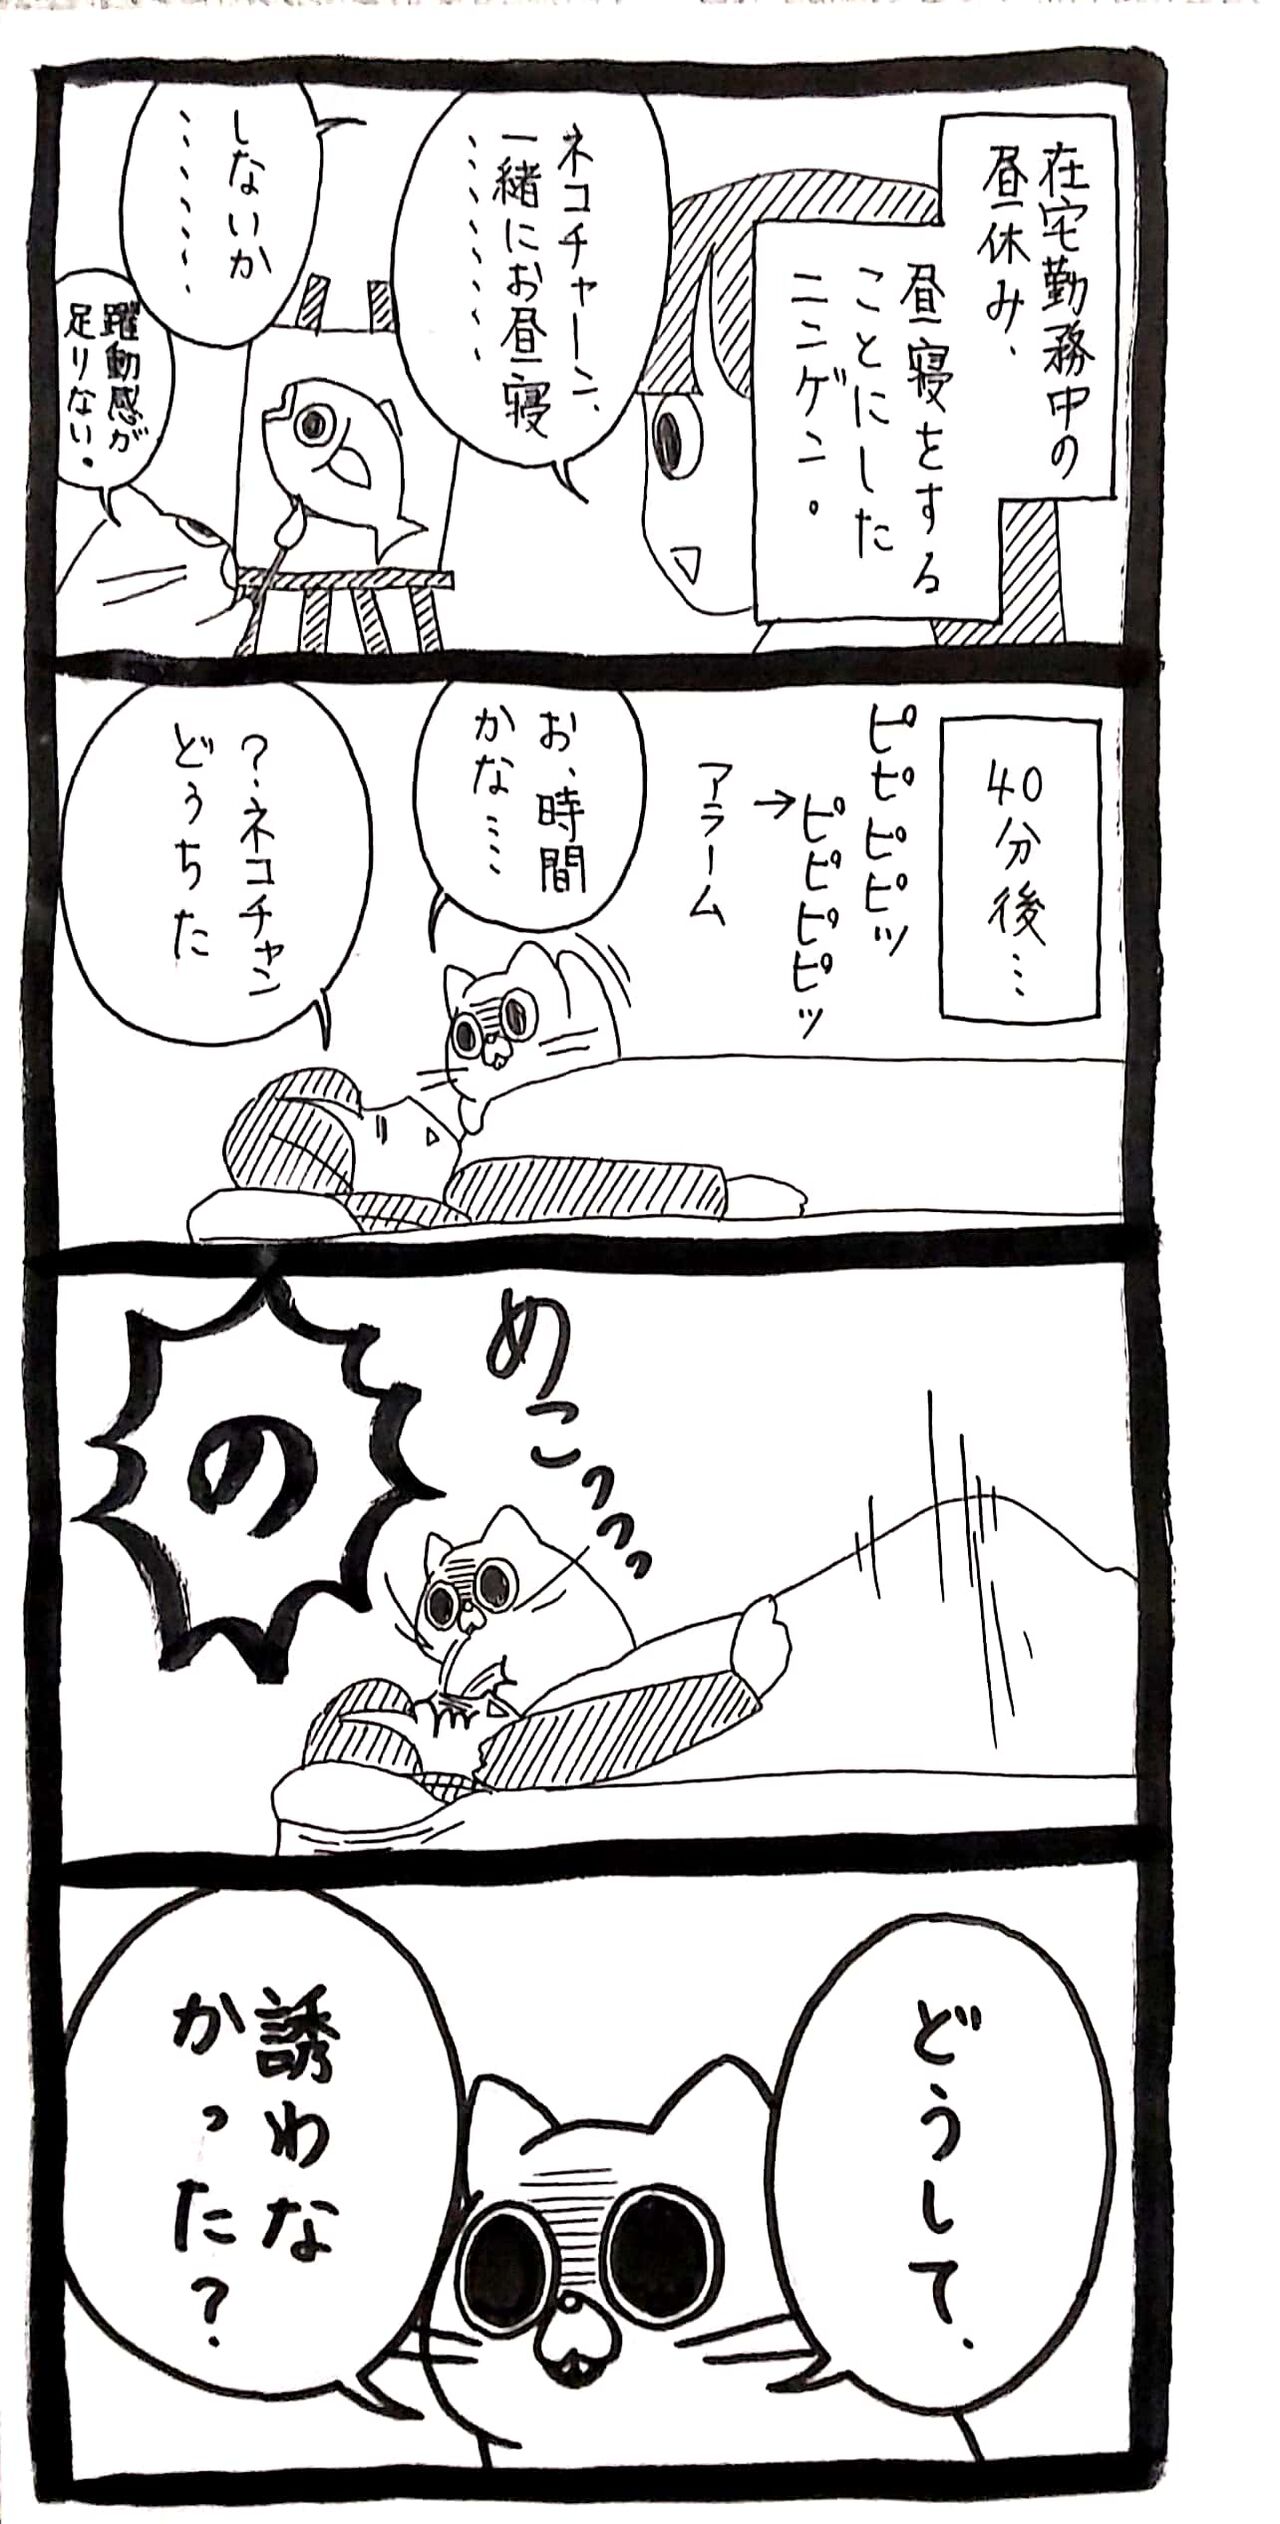 在宅勤務中の
昼休み、
昼寝をする
ことにした
ニンゲン。
ネコチャーン、
一緒にお昼寝
…………
しないか
…………
躍動感が
足りない。
40分後…
ピピピピッ
ピピピピッ
→
アラーム
お、時間
かな……
？ネコチャン
どぅちた
めこっっっ
の
どうして、
誘わな
かった？